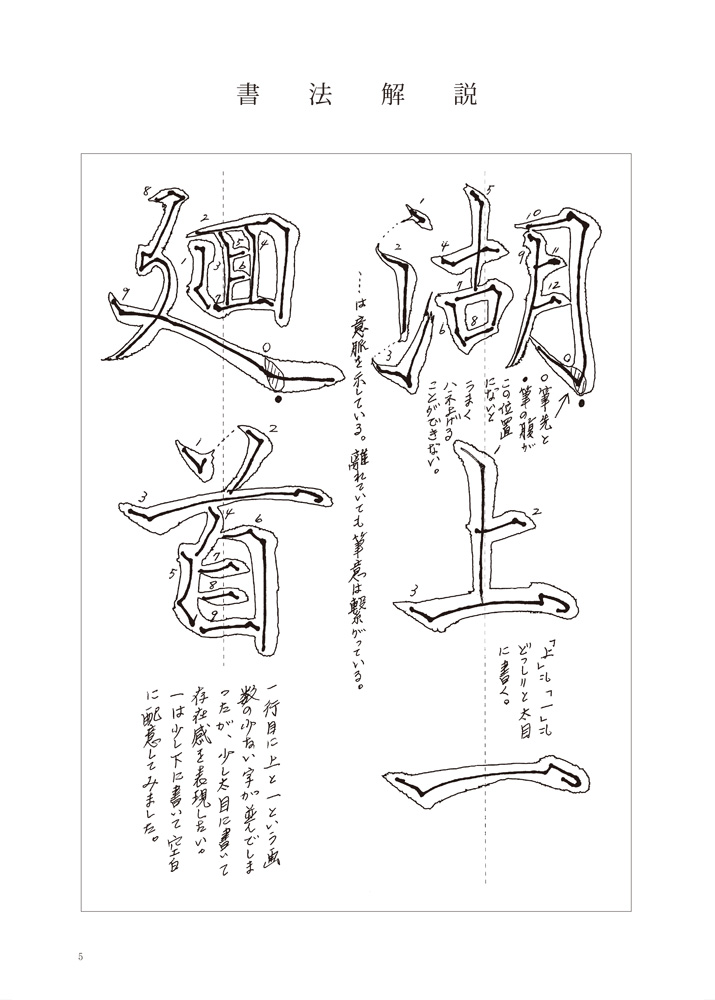 書法解説
湖上一
○筆先と
•筆の腹が
この位置
にないと
うまく
ハネ上げる
ことができない。
「上」も「一」も
どっしりと太目
に書く。
……は意脈を示している。離れていても筆意は繋がっている。
廻首
一行目に上と一という画
数の少ない字が並んでしま
ったが、少し太目に書いて
存在感を表現したい。
一は少し下に書いて空白
に配意してみました。
5